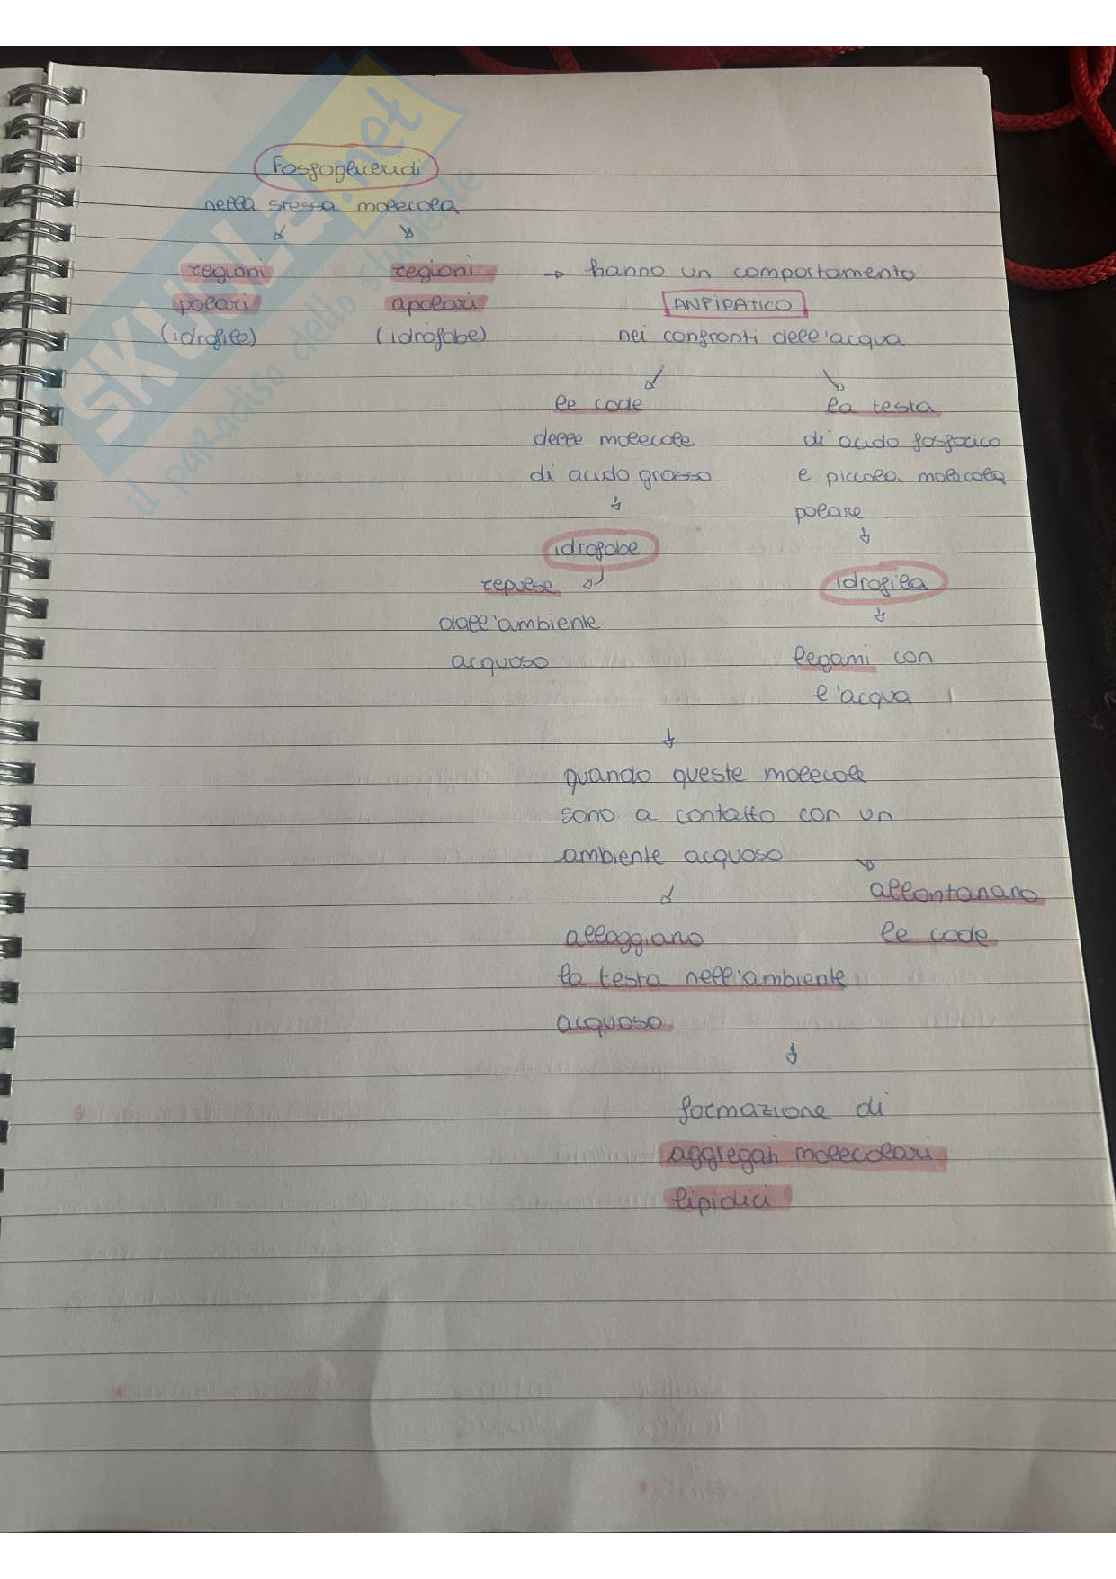 Fosfogliceridi
nella stessa molecola
regioni regioni → hanno un comportamento
polari apolari ANFIPATICO
(idrofile) (idrofobe) nei confronti dell'acqua
le code la testa
delle molecole di acido fosforico
di acido grasso e piccola molecola
polare
idrofobe
repulse idrofila
dall'ambiente
acquoso legami con
l'acqua
quando queste molecole
sono a contatto con un
ambiente acquoso
allontanano
alloggiano le code
la testa nell'ambiente
acquoso
formazione di
aggregati molecolari
lipidici
SKUOLA.net
il paradiso dello studente